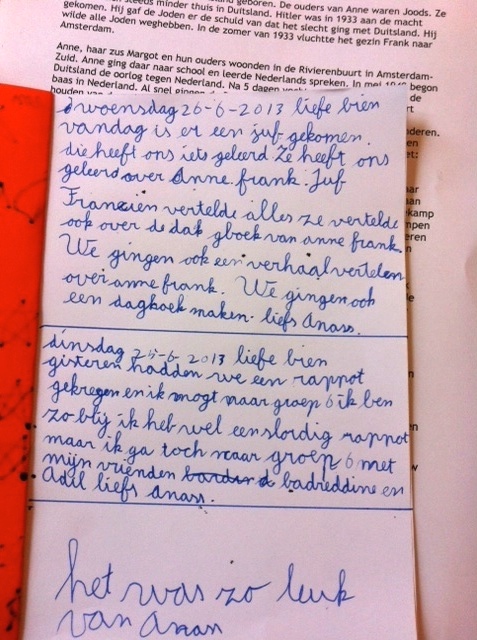 geboren. De ouders van Anne waren Joods. Ze
steeds minder thuis in Duitsland. Hitler was in 1933 aan de macht
gekomen. Hij gaf de Joden er de schuld van dat het slecht ging met Duitsland. Hij
wilde alle Joden weghebben. In de zomer van 1933 vluchtte het gezin Frank naar
Amsterdam.
Anne, haar zus Margot en hun ouders woonden in de Rivierenbuurt in Amsterdam-
Zuid. Anne ging daar naar school en leerde Nederlands spreken. In mei 1940 begon
Duitsland de oorlog tegen Nederland. Na 5 dagen
baas in Nederland. Al snel gingen de
houden van
woensdag 26-6-2013 liefe bien
vandag is er een juf gekomen.
die heeft ons iets geleerd Ze heeft ons
geleerd over Anne frank. Juf
Francien vertelde alles ze vertelde
ook over de dak gboek van anne frank.
We gingen ook een verhaal vertelen
over anne frank. We gingen ook
een dagkoek maken. liefs Anass.
dinsdag 25-6-2013 liefe bien
gisteren hadden we een rappot
gekregen en ik mogt naar groep 6 ik ben
zo blij ik heb wel een slordig rappot
maar ik ga toch naar groep 6 met
mijn vrienden badreddine en
Adil liefs Anass.
het was zo leuk
van Anass